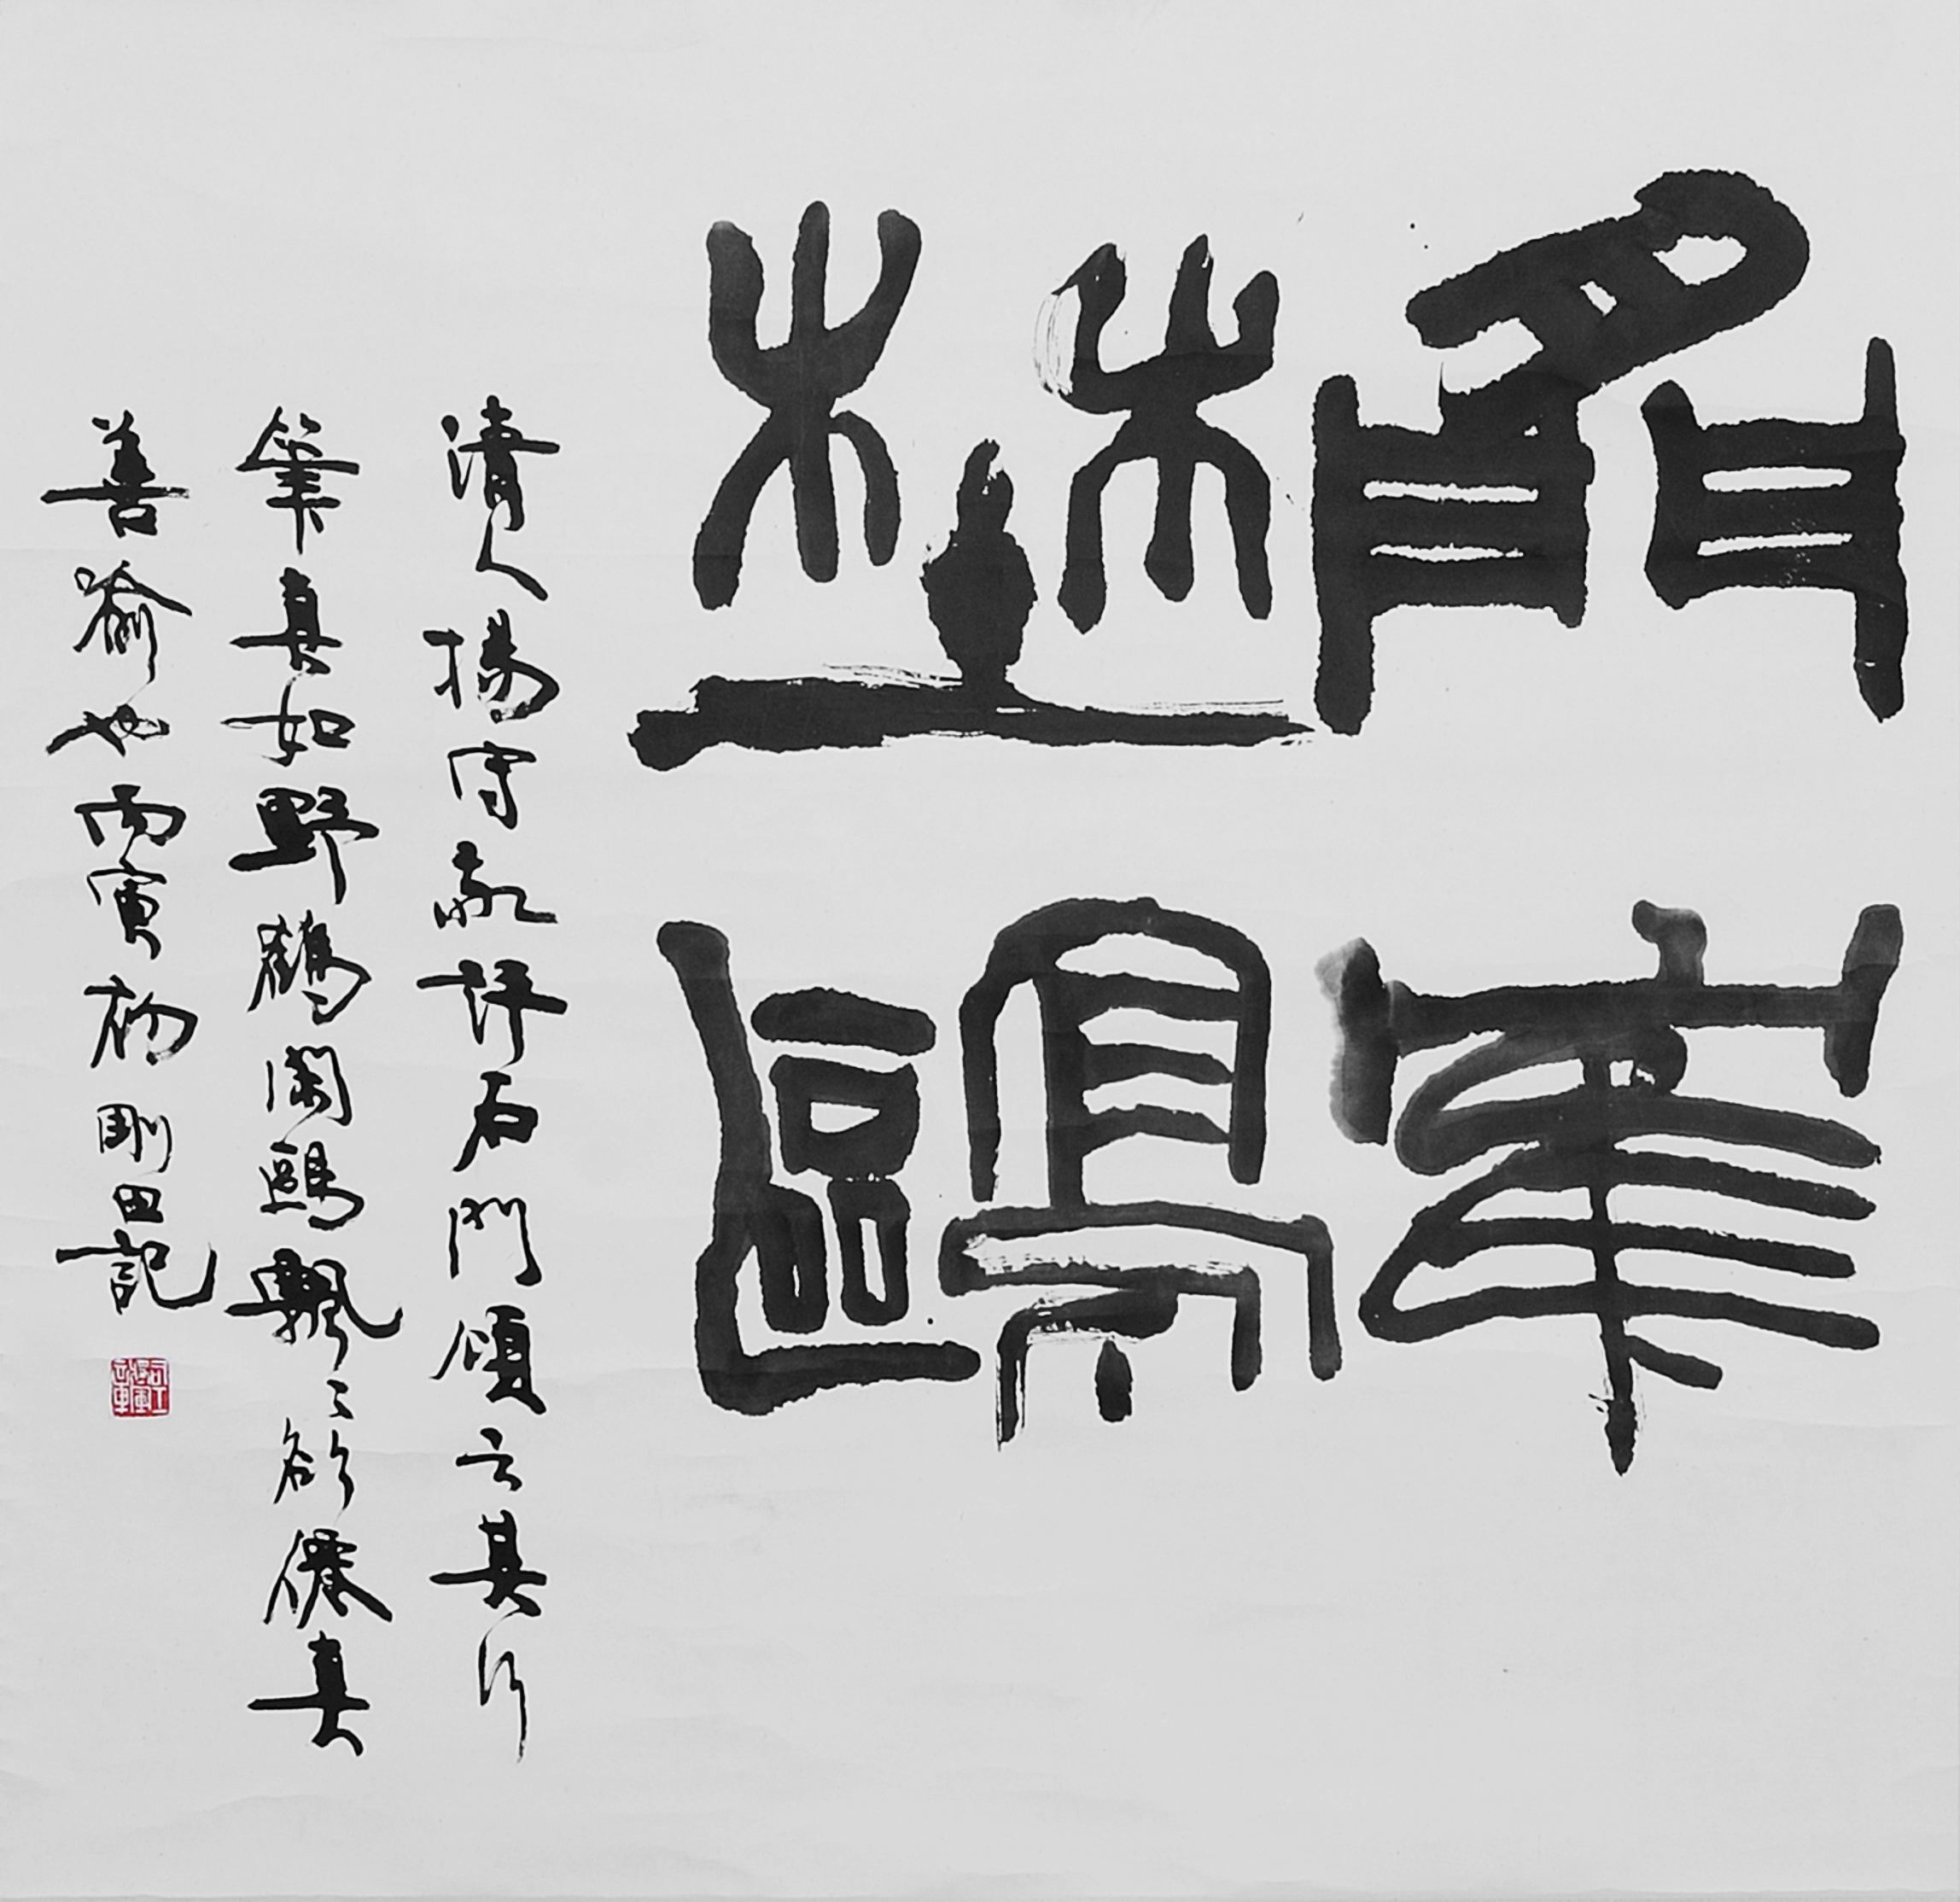 閒隺
埜鷗
清人楊守敬評石門頌云其行
筆真如野鶴閒鷗飄々欲僊真
善喻也丙寅初剛田記